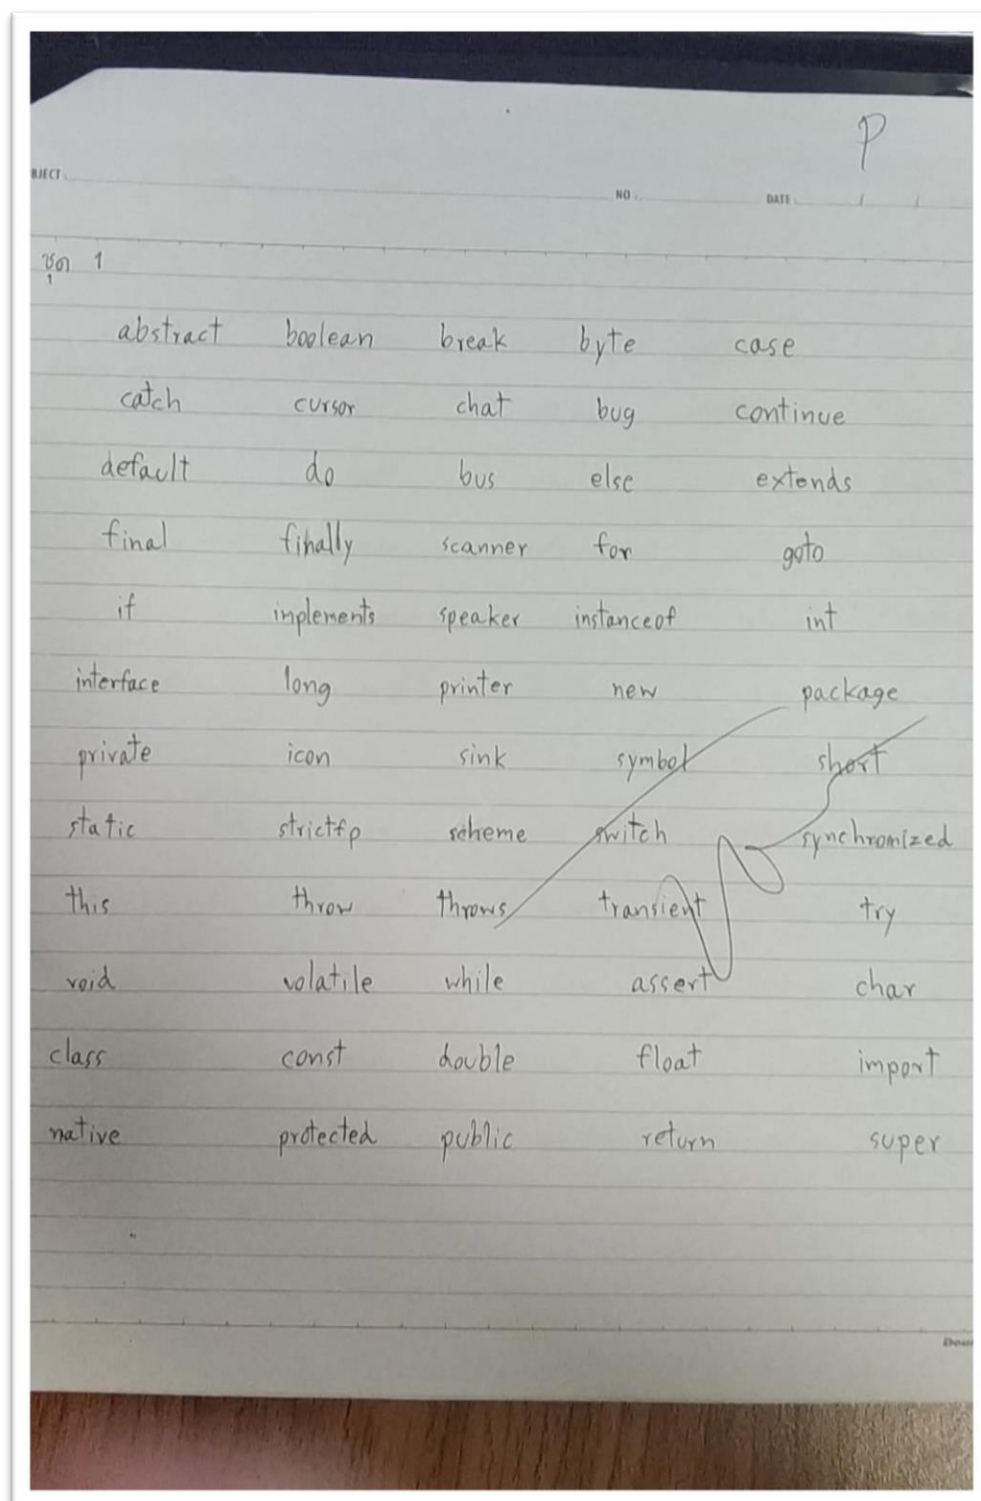 P
BJECT :
NO : DATE : / /
ชุด 1
abstract boolean break byte case
catch cursor chat bug continue
default do bus else extends
final finally scanner for goto
if implements speaker instanceof int
interface long printer new package
private icon sink symbol short
static strictfp scheme switch synchromized
this throw throws transient try
void volatile while assert char
class const double float import
native protected public return super